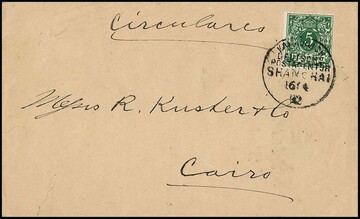 Circulares
5
KAISERLICH
DEUTSCHE
POSTAGENTUR
SHANGHAI
16/4
92
Messrs R. Kuster & Co
Cairo